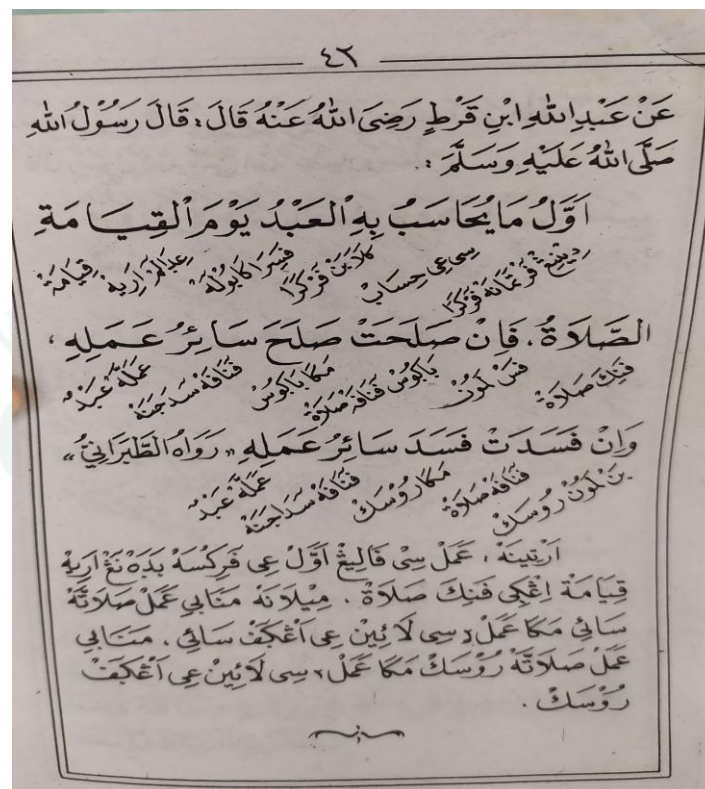 ٤٢
عَنْ عَبْدِاللهِ ابْنِ قَرْطٍ رَضِيَ اللهُ عَنْهُ قَالَ: قَالَ رَسُوْلُ اللهِ
صَلَّى اللهُ عَلَيْهِ وَسَلَّمَ :.
اَوَّلُ مَا يُحَاسَبُ بِهِ الْعَبْدُ يَوْمَ الْقِيَامَةِ
سِى عِى حِسَابْ قِيَامَةْ
الصَّلَاةُ، فَاِنْ صَلَحَتْ صَلَحَ سَائِرُ عَمَلِهِ ،
فَنِكَ صَلَاةْ بَاكُوْسْ فَنَافَهْ صَلَاةْ مَكَا بَاكُوْسْ فَنَافَهْ سَدَجَنَهْ عَمَلَهْ عَبْدْ
وَاِنْ فَسَدَتْ فَسَدَ سَائِرُ عَمَلِهِ «رَوَاهُ الطَّبَرَانِيُّ»
بَنْ لَمُوْنْ رُوْسَكْ فَنَافَهْ صَلَاةْ مَكَا رُوْسَكْ فَنَافَهْ سَدَاجَنَهْ عَمَلَهْ عَبْدْ
اَرْتِيْنَهْ ، عَمَلْ سِى فَالِيڠْ اَوَّلْ عِى فَرِكْسَهْ بَدَهْ نَڠْ اَرِيهْ
قِيَامَةْ اِڠْكِى فَنِكَ صَلَاةْ . مِيْلَانَهْ مَنَابِى عَمَلْ صَلَاتَهْ
سَائِى مَكَا عَمَلْ٢ سِى لَائِيْنْ عِى اَڠْكَفْ سَائِى . مَنَابِى
عَمَلْ صَلَاتَهْ رُوْسَكْ مَكَا عَمَلْ٢ سِى لَائِيْنْ عِى اَڠْكَفْ
رُوْسَكْ .